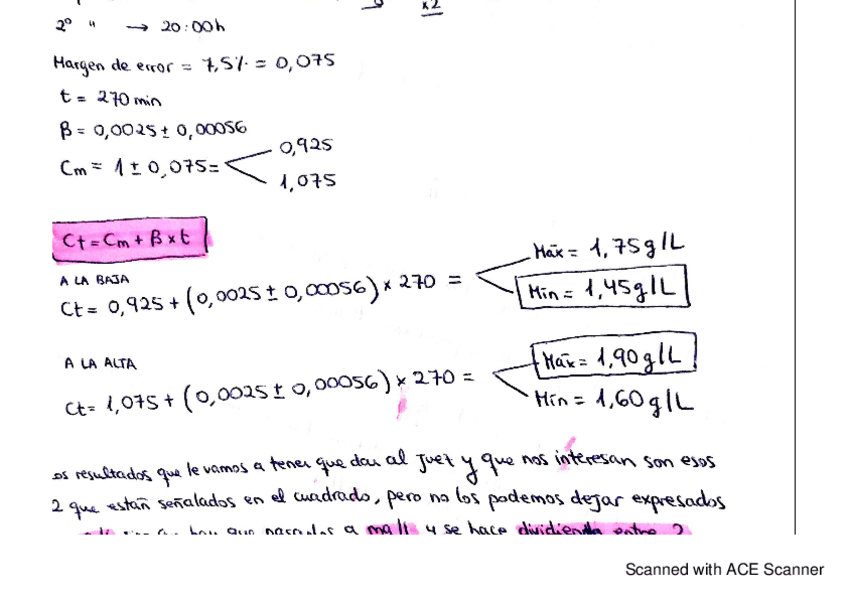 x2
2º " → 20:00h
Margen de error = 7,5% = 0,075
t = 270 min
β = 0,0025 ± 0,00056
Cm = 1 ± 0,075 =
0,925
1,075
Ct = Cm + β x t
A LA BAJA
Ct = 0,925 + (0,0025 ± 0,00056) x 270 =
Máx = 1,75 g/L
Mín = 1,45 g/L
A LA ALTA
Ct = 1,075 + (0,0025 ± 0,00056) x 270 =
Máx = 1,90 g/L
Mín = 1,60 g/L
os resultados que le vamos a tener que dar al Juez y que nos interesan son esos
2 que están señalados en el cuadrado, pero no los podemos dejar expresados
hay que pasarlos a mg/l y se hace dividiendo entre 2
Scanned with ACE Scanner